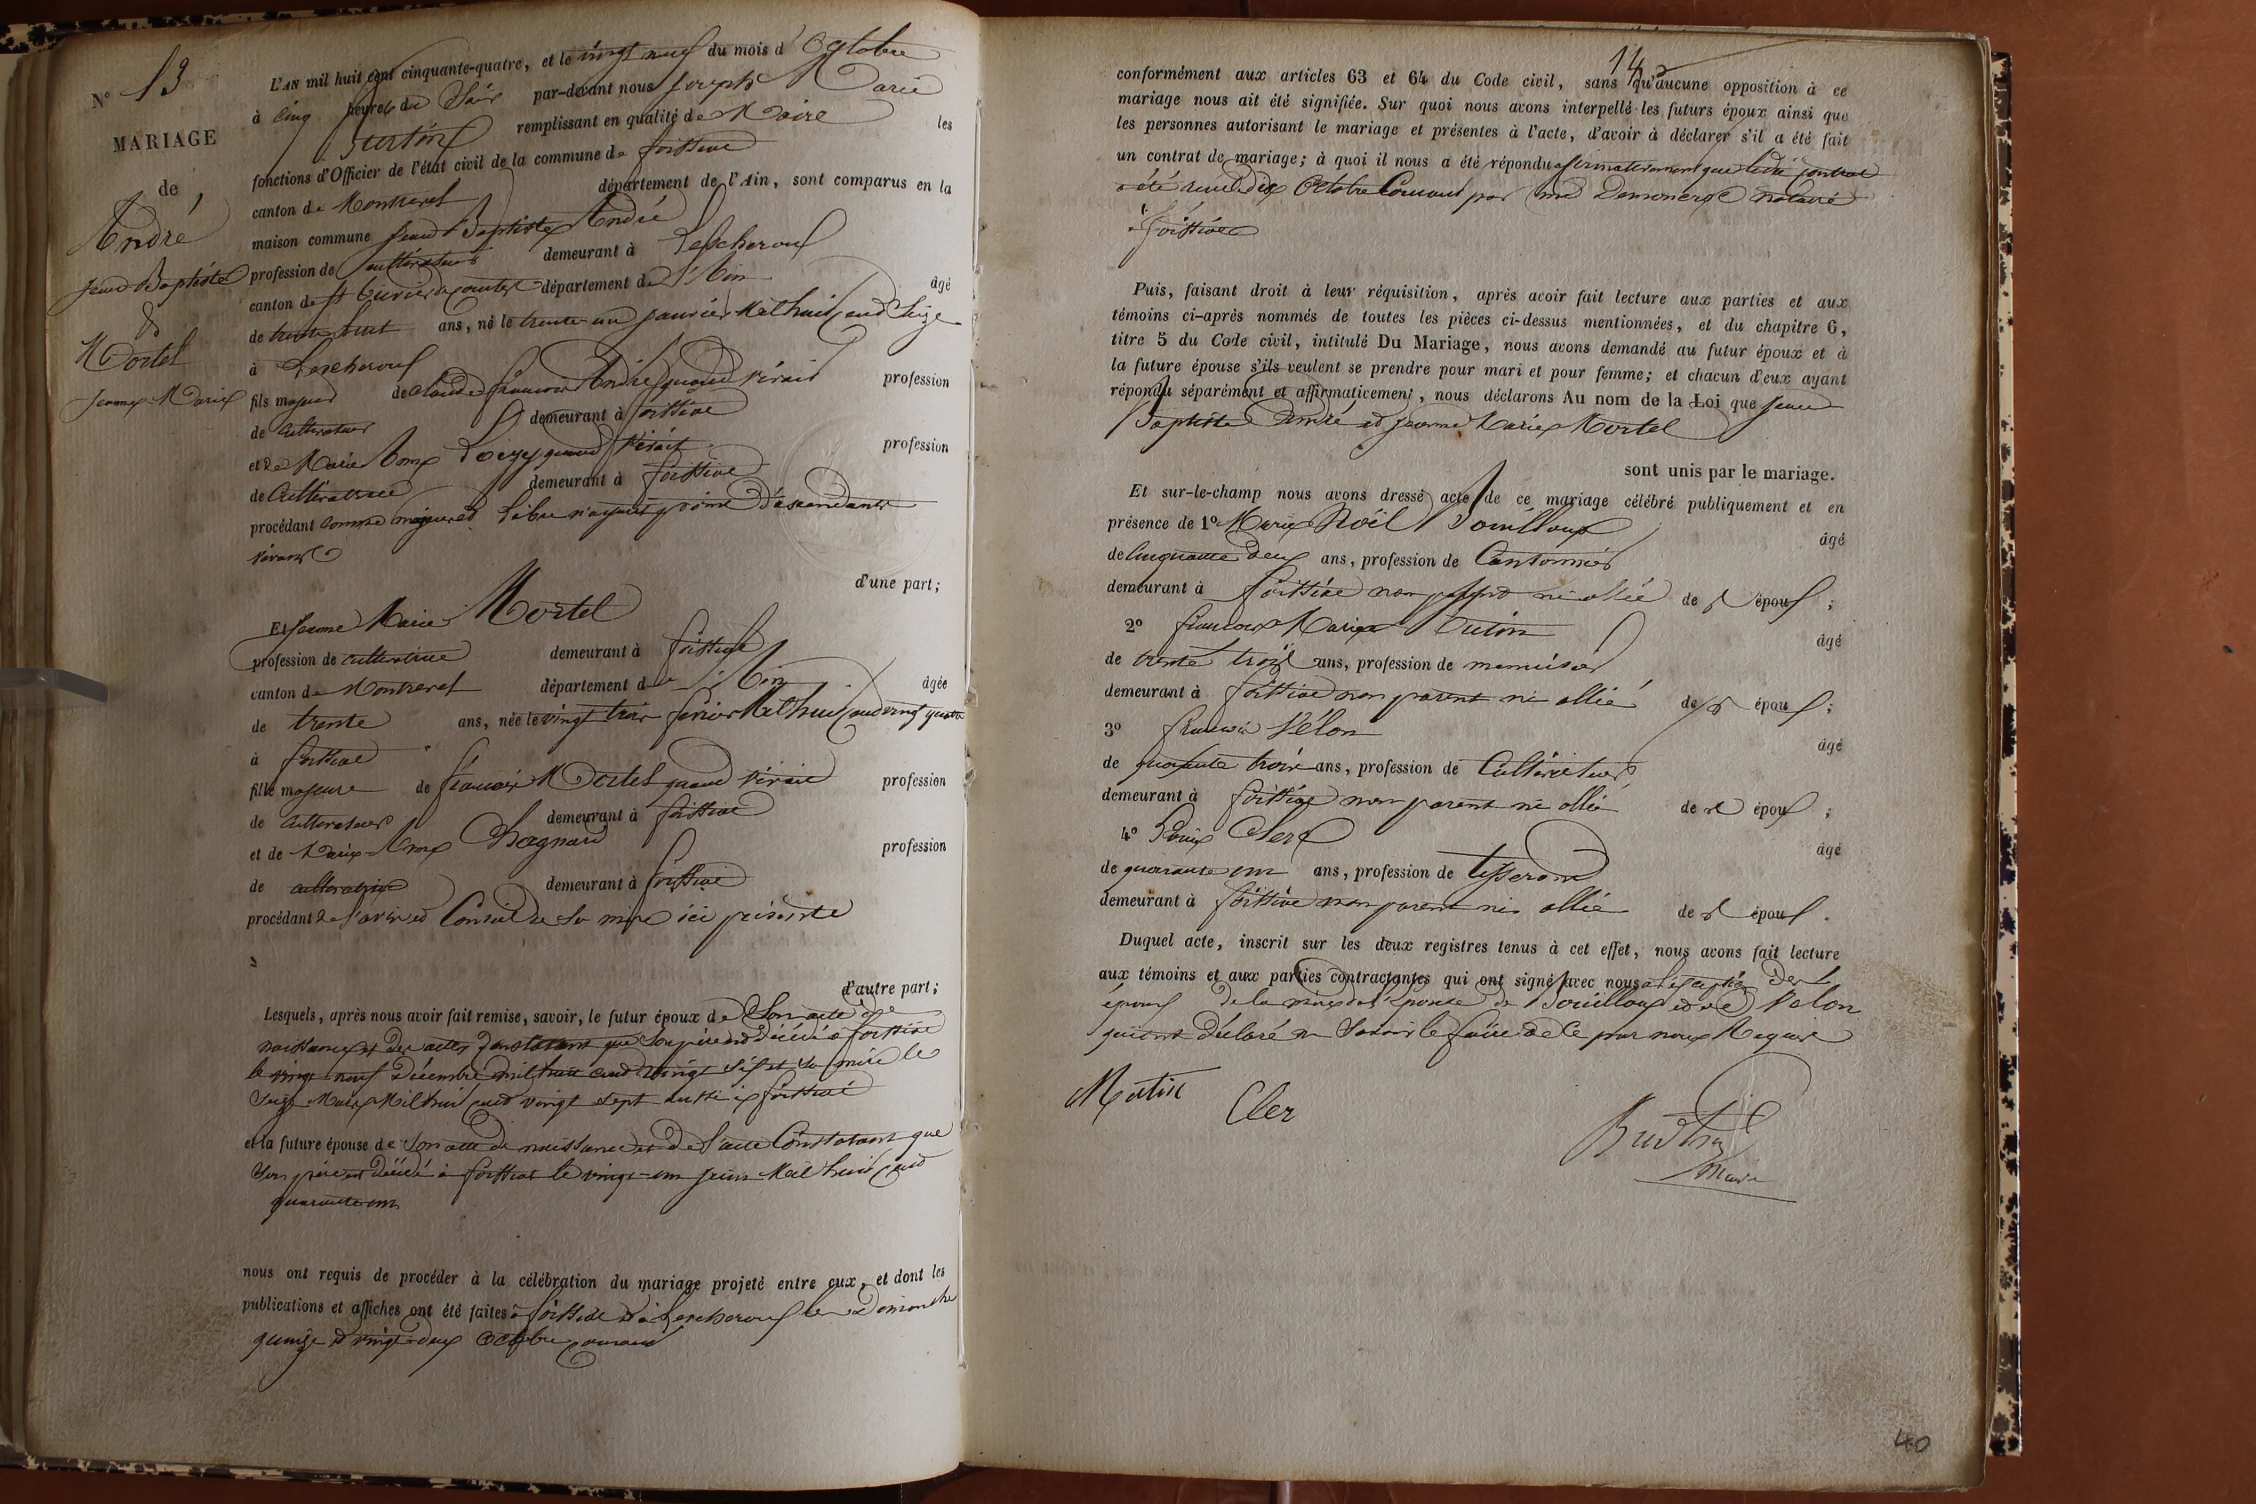 N° 13
MARIAGE
de
André
Jean Baptiste
&
Mortel
Jeanne Marie
L'AN mil huit cent cinquante-quatre, et le vingt neuf du mois d'Octobre
à Cinq heures du Soir par-devant nous Joseph Marie
Burtin remplissant en qualité de Maire les
fonctions d'Officier de l'état civil de la commune de foissiat
canton de Montrevel département de l'Ain, sont comparus en la
maison commune Jean Baptiste André
profession de cultivateur demeurant à Lescheroux
canton de St Trivier de Courtes département de l'Ain âgé
de trente huit ans, né le trente un janvier Mil huit cent Seize
à Lescheroux
fils majeur de Claude françois André quand vivait profession
de cultivateur demeurant à foissiat
et de Marie Loizy quand vivait profession
de Cultivatrice demeurant à foissiat
procédant comme majeur et libre n'ayant point d'ascendants
vivants
d'une part;
Et Jeanne Marie Mortel
profession de cultivatrice demeurant à foissiat
canton de Montrevel département de l'Ain âgée
de trente ans, née le vingt trois février Mil huit cent vingt quatre
à foissiat
fille majeure de françois Mortel quand vivait profession
de cultivateur demeurant à foissiat
et de Marie Chagnard profession
de cultivatrice demeurant à foissiat
procédant de l'avis et Conseil de Sa mère ici présente
d'autre part;
Lesquels, après nous avoir fait remise, savoir, le futur époux de Son acte de
naissance et des actes Constatant que Son père est décédé à foissiat
le vingt neuf Décembre mil huit cent vingt Six et Sa mère le
Seize Mars Mil huit cent vingt Sept aussi à foissiat
et la future épouse de Son acte de naissance et de l'acte Constatant que
Son père est décédé à foissiat le vingt un juin Mil huit cent
quarante un
nous ont requis de procéder à la célébration du mariage projeté entre eux, et dont les
publications et affiches ont été faites à foissiat et à Lescheroux les Dimanche
quinze et vingt deux Octobre courant
14
conformément aux articles 63 et 64 du Code civil, sans qu'aucune opposition à ce
mariage nous ait été signifiée. Sur quoi nous avons interpellé les futurs époux ainsi que
les personnes autorisant le mariage et présentes à l'acte, d'avoir à déclarer s'il a été fait
un contrat de mariage; à quoi il nous a été répondu affirmativement que ledit contrat
a été reçu le dix Octobre Courant par me notaire
à foissiat
Puis, faisant droit à leur réquisition, après avoir fait lecture aux parties et aux
témoins ci-après nommés de toutes les pièces ci-dessus mentionnées, et du chapitre 6,
titre 5 du Code civil, intitulé Du Mariage, nous avons demandé au futur époux et à
la future épouse s'ils veulent se prendre pour mari et pour femme; et chacun d'eux ayant
répondu séparément et affirmativement, nous déclarons Au nom de la Loi que Jean
Baptiste André et Jeanne Marie Mortel
sont unis par le mariage.
Et sur-le-champ nous avons dressé acte de ce mariage célébré publiquement et en
présence de 1° Marie Noël Bouilloux âgé
de Cinquante Deux ans, profession de Cantonnier
demeurant à foissiat non parent ni allié des époux;
2° françois Marie âgé
de trente trois ans, profession de menuisier
demeurant à foissiat non parent ni allié des époux;
3° françois Vélon âgé
de quarante trois ans, profession de Cultivateur
demeurant à foissiat non parent ni allié des époux;
4° Louis Clerc âgé
de quarante un ans, profession de tisserand
demeurant à foissiat non parent ni allié des époux.
Duquel acte, inscrit sur les deux registres tenus à cet effet, nous avons fait lecture
aux témoins et aux parties contractantes qui ont signé avec nous à l'exception Des
époux de la mère de l'épouse de Bouilloux et de Velon
qui ont Déclaré ne Savoir le faire de Ce par nous Requis
Cler
Burtin
Maire
40